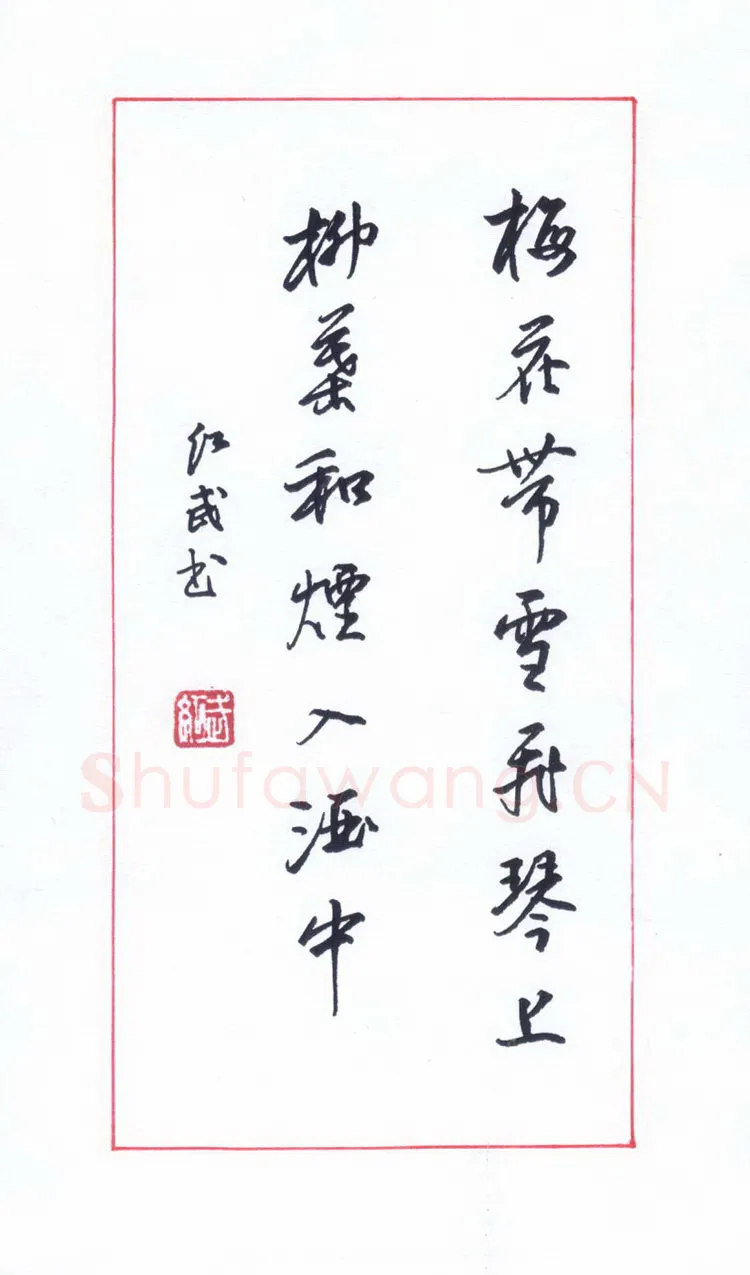 梅花帶雪飛琴上
柳葉和煙入酒中
红武书
武紅
Shufawang.CN